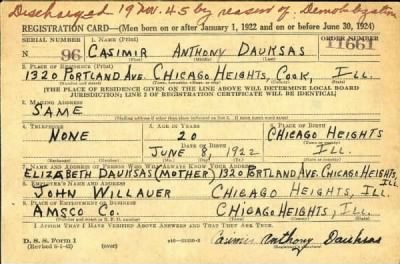 Discharged 19 Nov. 45 by reason of Demobilization
REGISTRATION CARD—(Men born on or after January 1, 1922 and on or before June 30, 1924)
SERIAL NUMBER 1. NAME (Print) ORDER NUMBER
N 96 CASIMIR ANTHONY DAUKSAS 11661
2. PLACE OF RESIDENCE (Print)
1320 PORTLAND AVE. CHICAGO HEIGHTS, COOK, ILL.
[THE PLACE OF RESIDENCE GIVEN ON THE LINE ABOVE WILL DETERMINE LOCAL BOARD
JURISDICTION; LINE 2 OF REGISTRATION CERTIFICATE WILL BE IDENTICAL]
3. MAILING ADDRESS
SAME
4. TELEPHONE 5. AGE IN YEARS 6. PLACE OF BIRTH
NONE 20 CHICAGO HEIGHTS
DATE OF BIRTH
JUNE 8 1922 ILL.
7. NAME AND ADDRESS OF PERSON WHO WILL ALWAYS KNOW YOUR ADDRESS
ELIZABETH DAUKSAS (MOTHER) 1320 PORTLAND AVE. CHICAGO HEIGHTS,
8. EMPLOYER'S NAME AND ADDRESS ILL.
JOHN WILLAUER CHICAGO HEIGHTS, ILL.
9. PLACE OF EMPLOYMENT OR BUSINESS
AMSCO CO. CHICAGO HEIGHTS, ILL.
I AFFIRM THAT I HAVE VERIFIED ABOVE ANSWERS AND THAT THEY ARE TRUE.
D. S. S. Form 1
(Revised 6-1-42) (over) Casimir Anthony Dauksas